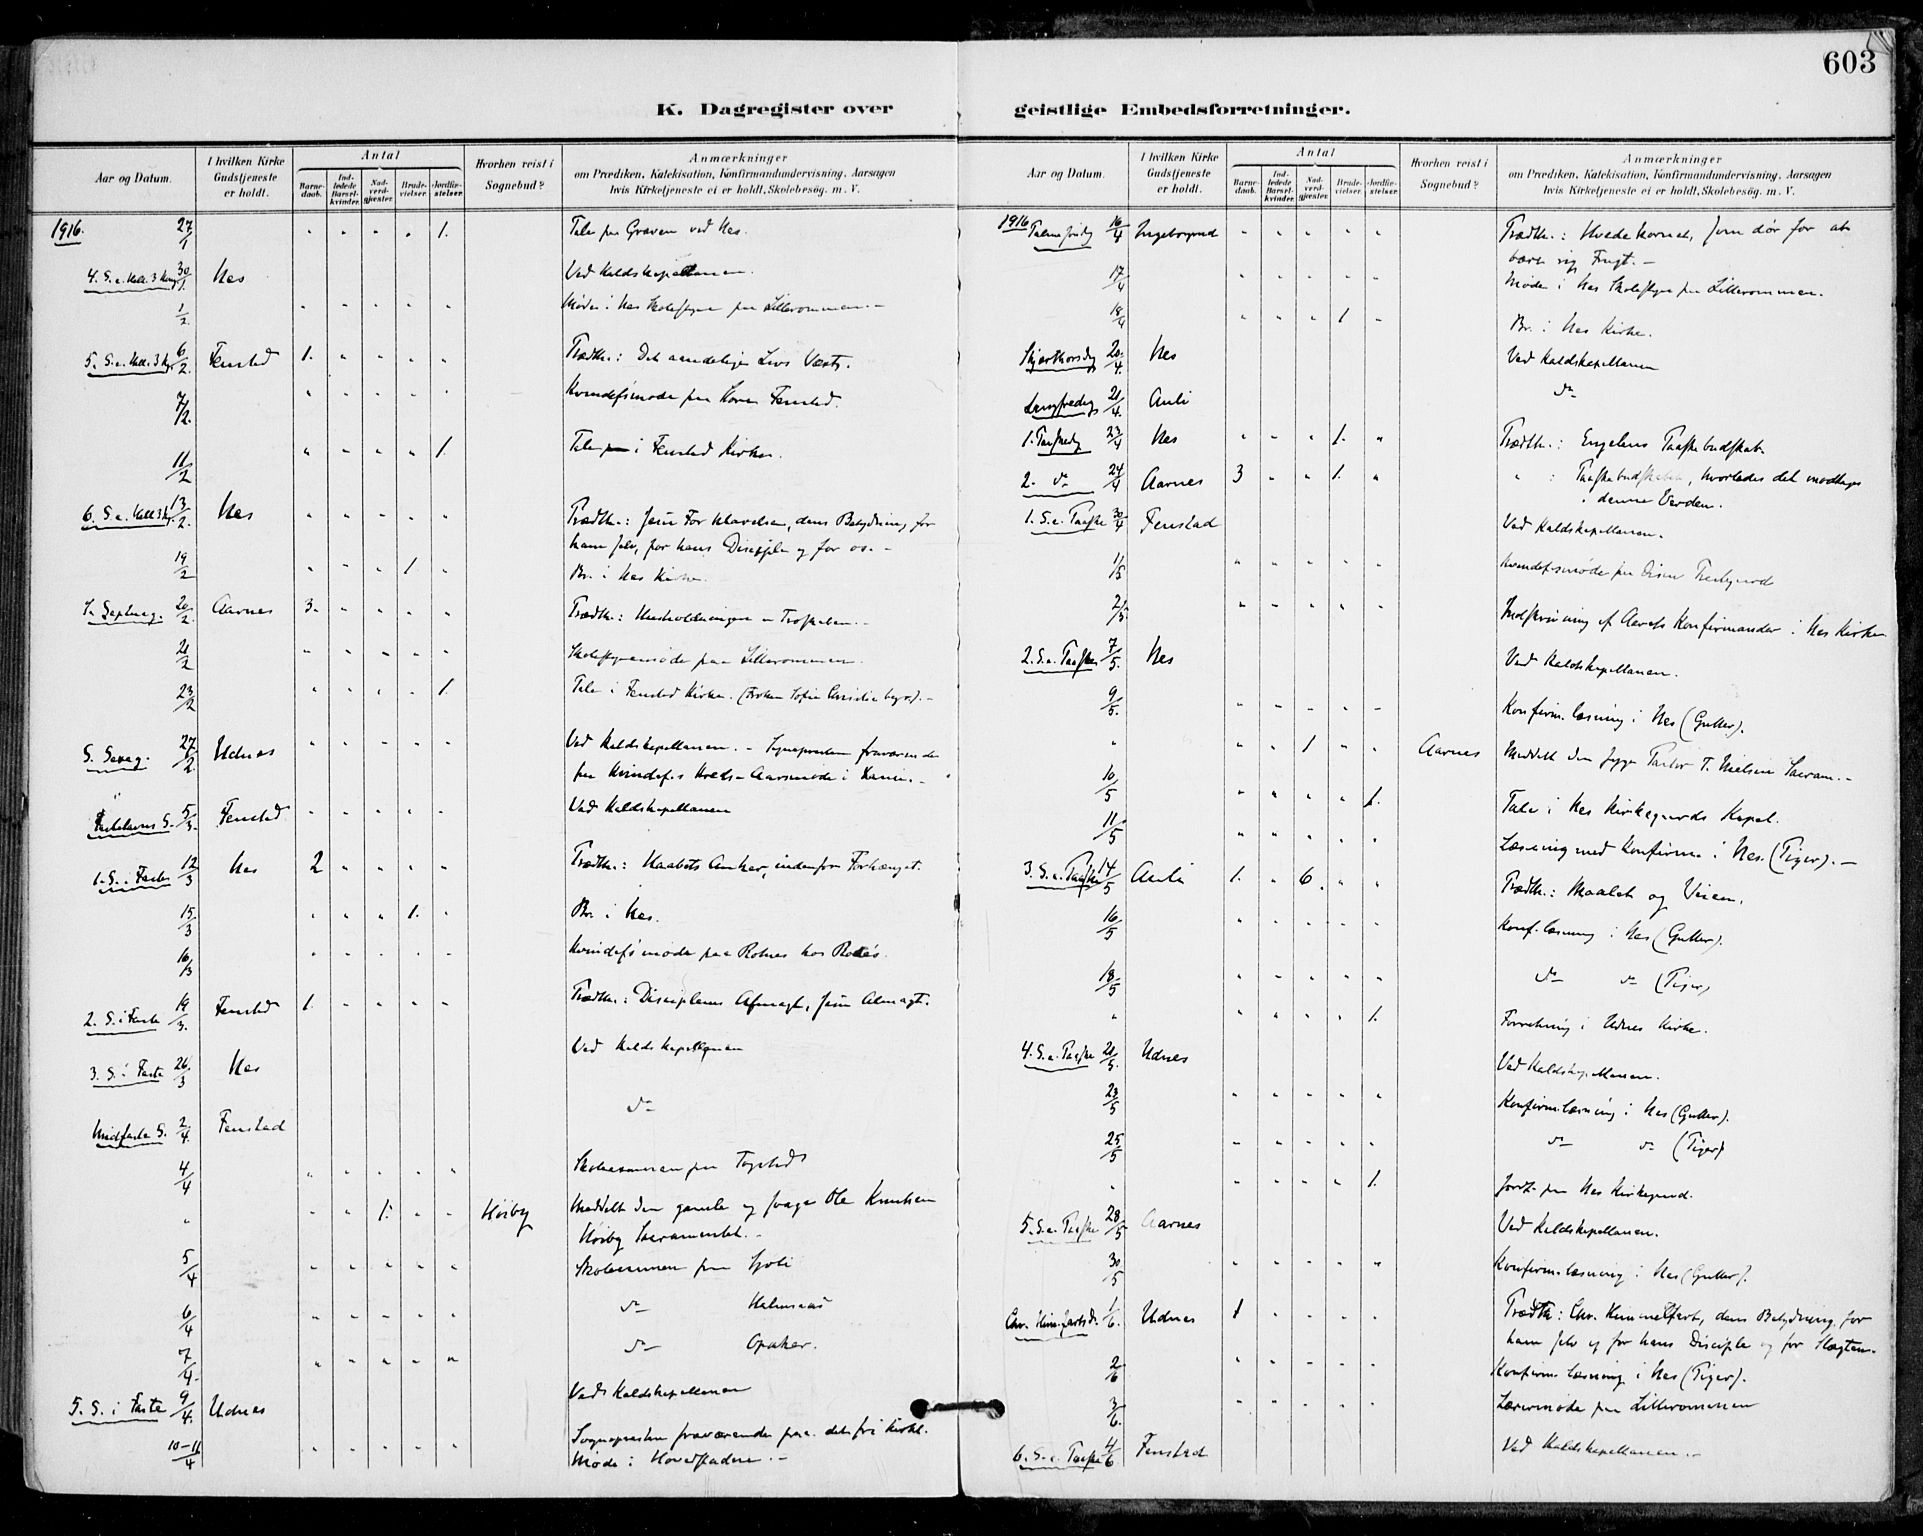 603
K. Dagregister over
geistlige Embedsforretninger.
Aar og Datum.
I hvilken Kirke Gudstjeneste er holdt.
Antal
Barnedaab.
Indledede Barselkvinder.
Nadverdgjester.
Brudevielser.
Jordfæstelser.
Hvorhen reist i Sognebud?
Anmærkninger
om Prædiken, Katekisation, Konfirmandundervisning, Aarsagen
hvis Kirketjeneste ei er holdt, Skolebesøg, m. V.
1916. 27/1 " " " " 1. Tale paa Graven ved Nes.
4. S. e. Hell. 3 Kong. 30/1. Nes Ved Kaldskapellanen.
1/2. " " " " " Møde i Nes Skolestyre paa Lillerommen. -
5. S. e. Hell. 3 Kg. 6/2. Fenstad 1. " " " " Prædth.: Det aandelige Livs Vækst.
7/2. " " " " " Kvindefsmøde paa Fenstad.
11/2 " " " " 1. Tale i Fenstad Kirke.
6. S. e. Hell. 3 Kg. 13/2. Nes " " " " " Prædth.: Jesu Forklarelse, dens Betydning for
ham selv, for hans Disciple og for os. -
19/2 " " " 1 " Br. i Nes Kirke.
S. Septuag. 20/2. Aarnes 3. " " " " Prædth.: Husholdningen
21/2 " " " " " Skolestyremøde paa Lillerommen.
23/2 " " " " 1. Tale i Fenstad Kirke. (Frøken Sofie
S. Sexag. 27/2. Udnes " " " " " Ved Kaldskapellanen. - Sognepresten fraværende
paa Kvindef.s Kreds-Aarsmøde i
Fastelavns S. 5/3. Fenstad " " " " " Ved Kaldskapellanen
1. S. i Faste 12/3 Nes 2 " " " " Prædth.: Haabets Anker, indenfor Forhænget.
15/3 " " " 1. " Br. i Nes.
16/3 " " " " " Kvindefsmøde paa Rotnes hos
2. S. i Faste 19/3. Fenstad 1. " " " " Prædth.: Disciplenes Afmagt, Jesu Almagt.
3. S. i Faste 26/3 Nes Ved Kaldskapellanen
Midfaste S. 2/4. Fenstad do
4/4 " " " " " Skoleexamen paa Togstad
" " " 1. " " Horby Meddelt den gamle og svage Ole Knudsen
Horby Sacramentet. -
5/4 " " " " " Skoleexamen paa Fjoli
6/4 " " " " " do Halmaas
7/4. " " " " " do Opaker.
5. S. i Faste 9/4. Udnes Ved Kaldskapellanen
10-11/4 " " " " " Sognepresten fraværende paa det fri kirkel.
Møde i Hovedstaden. -
Aar og Datum.
I hvilken Kirke Gudstjeneste er holdt.
Antal
Barnedaab.
Indledede Barselkvinder.
Nadverdgjester.
Brudevielser.
Jordfæstelser.
Hvorhen reist i Sognebud?
Anmærkninger
om Prædiken, Katekisation, Konfirmandundervisning, Aarsagen
hvis Kirketjeneste ei er holdt, Skolebesøg, m. V.
1916 Palmesøndg 16/4 Ingeborgrud " " " " " Prædth.: Hvedekornet, som dør for at
bære rig Frugt. -
17/4 " " " " " Møde i Nes Skolestyre paa Lillerommen.
18/4 " " " 1 " Br. i Nes Kirke.
Skjærthorsdg 20/4. Nes Ved Kaldskapellanen
Langfredag 21/4. Auli do
1. Paaskedg 23/4 Nes " " " 1. " Prædth.: Engelens Paaskebudskab.
2. do 24/4 Aarnes 3 " " 1. " " : Paaskebudskabet, hvorledes det modtages
i denne Verden.
1. S. e. Paaske 30/4 Fenstad Ved Kaldskapellanen.
1/5 " " " " " Kvindefsmøde paa
2/5. " " " " " Indskrivning af Aarets Konfirmander i Nes Kirke.
2. S. e. Paaske 7/5. Nes Ved Kaldskapellanen.
9/5. " " " " " Konfirm. læsning i Nes (Gutter).
" " " 1 " " Aarnes Meddelt den syge Pastor T. Nielsen Sacram. -
10/5 " " " " 1. Tale i Nes Kirkegaards Kapel.
11/5 " " " " " Læsning med Konfirm. i Nes. (Piger). -
3. S. e. Paaske 14/5 Auli 1. " 6. " " Prædth.: Maalet og Veien.
16/5 " " " " " Konf. læsning i Nes (Gutter).
18/5 " " " " " do do (Piger)
" " " " " 1. Forretning i Udnes Kirke.
4. S. e. Paaske 21/5. Udnes Ved Kaldskapellanen.
23/5 " " " " " Konfirm. læsning i Nes (Gutter).
25/5 " " " " " do do (Piger)
" " " " " 1. Jordf. paa Nes Kirkegaard.
5. S. e. Paaske 28/5 Aarnes Ved Kaldskapellanen.
30/5 " " " " " Konfirm. læsning i Nes (Gutter).
Chr. Himmelfartsd. 1/6. Udnes 1 " " " " Prædth.: Chr. Himmelfart, dens Betydning for
ham selv og for hans Disciple og for Slægten.
2/6 " " " " " Konfirm. læsning i Nes (Piger).
3/6. " " " " " Lærermøde paa Lillerommen
6. S. e. Paaske 4/6 Fenstad Ved Kaldskapellanen. -